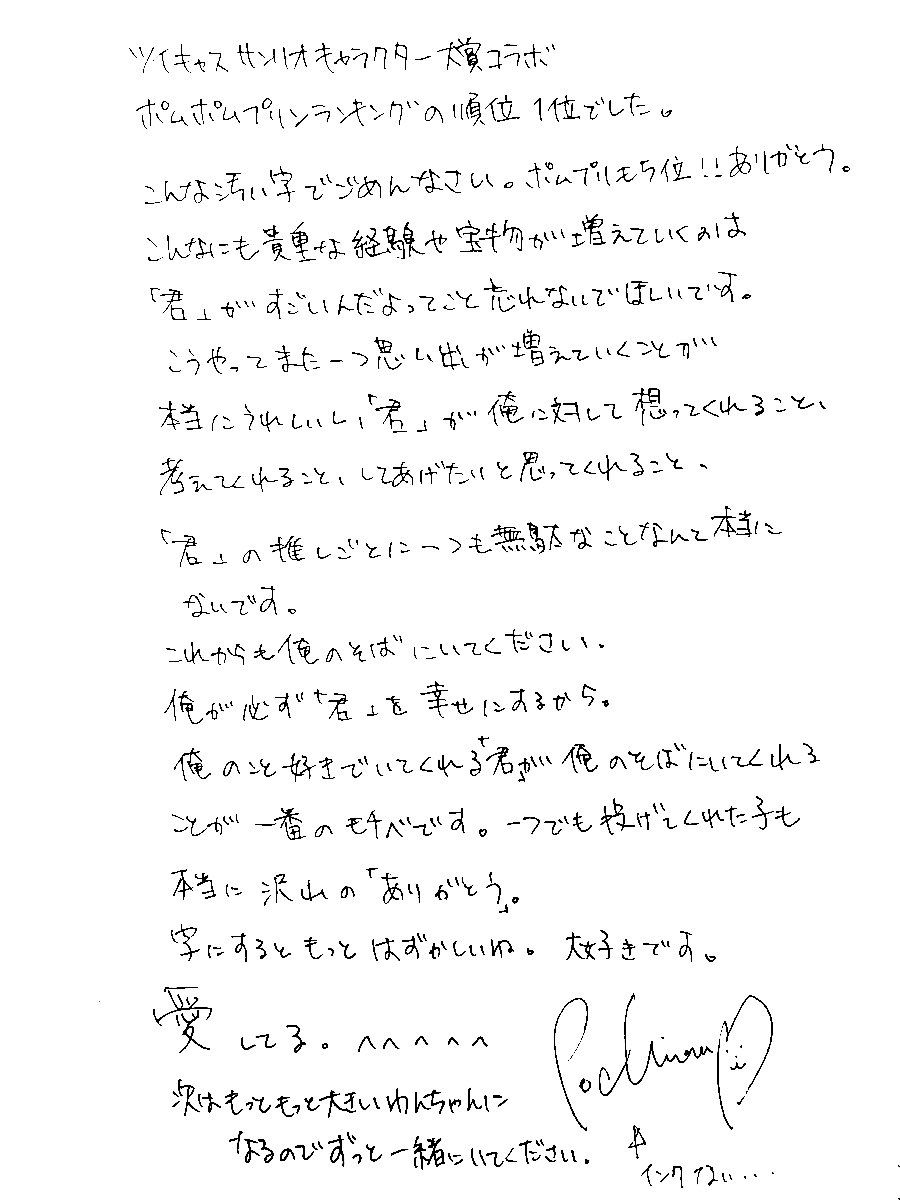 ツイキャス サンリオキャラクター大賞コラボ
ポムポムプリンランキングの順位 1位でした。
こんな汚い字でごめんなさい。ポムプリも5位!!ありがとう。
こんなにも貴重な経験や宝物が増えていくのは
「君」がすごいんだよってこと忘れないでほしいです。
こうやってまた一つ思い出が増えていくことが
本当にうれしいし、「君」が俺に対して想ってくれること、
考えてくれること、してあげたいと思ってくれること、
「君」の推しごとに一つも無駄なことなんて本当に
ないです。
これからも俺のそばにいてください。
俺が必ず「君」を幸せにするから。
俺のこと好きでいてくれる「君」が俺のそばにいてくれる
ことが一番のモチベです。一つでも投げてくれた子も
本当に沢山の「ありがとう」。
字にするともっとはずかしいね。大好きです。
愛してる。へへへへへ
次はもっともっと大きいわんちゃんに
なるのでずっと一緒にいてください。
インクない...